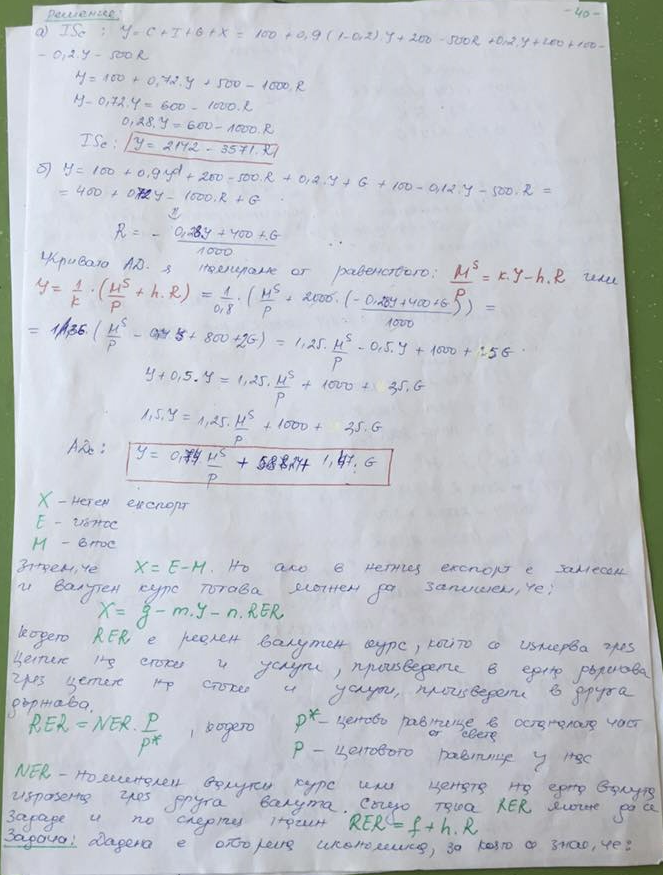 Решение: -40-
а) ISc : Y = C + I + G + X = 100 + 0,9(1-0,2).Y + 200 - 500R + 0,2.Y + 200 + 100 -
- 0,2.Y - 500R
Y = 100 + 0,72.Y + 500 - 1000.R
Y - 0,72.Y = 600 - 1000.R
0,28.Y = 600 - 1000.R
ISc : Y = 2142 - 3571.R
б) Y = 100 + 0,9Yd + 200 - 500.R + 0,2.Y + G + 100 - 0,12.Y - 500.R =
= 400 + 0,72Y - 1000.R + G
R = - 0,28Y + 400 + G / 1000
Кривата AD от равенството: M^S/P = k.Y - h.R или
Y = 1/k . (M^S/P + h.R) = 1/0,8 . (M^S/P + 2000. (-0,28Y + 400 + G / 1000)) =
= (M^S/P + 800 + 2G) = 1,25. M^S/P - 0,5.Y + 1000 + 5G
Y + 0,5.Y = 1,25. M^S/P + 1000 + 2,5.G
1,5.Y = 1,25. M^S/P + 1000 + 2,5.G
ADc : Y = M^S/P + G
X - нетен експорт
E - износ
M - внос
Знаем, че X = E - M. Но ако в нетния експорт е замесен
и валутен курс тогава можем да запишем, че:
X = g - m.Y - n.RER
където RER е реален валутен курс, който се измерва чрез
цените на стоки и услуги, произведени в една държава
чрез цените на стоки и услуги, произведени в друга
държава.
RER = NER. P/P* , където P* - ценово равнище в останалата част
от света
P - ценовото равнище у нас
NER - номинален валутен курс или цената на една валута
изразена чрез друга валута. Също така RER може да се
зададе и по следния начин RER = f + h.R
Задача: Дадена е отворена икономика, за която се знае, че: